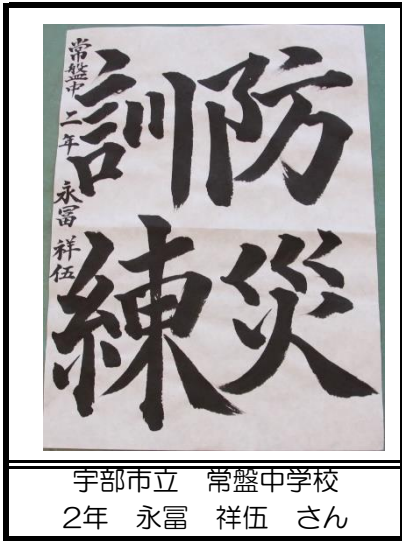 防災
訓練
常盤中 二年 永冨 祥伍
宇部市立 常盤中学校
2年 永冨 祥伍 さん